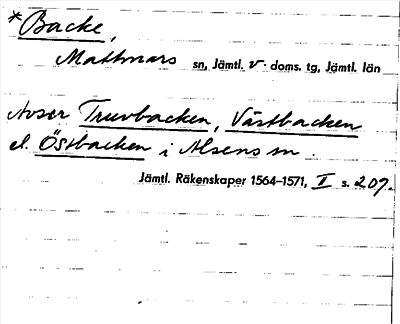 *Backe,
Mattmars sn, Jämtl. v. doms. tg, Jämtl. län
Avser Truvbacken, Västbacken
el. Östbacken i Alsens sn.
Jämtl. Räkenskaper 1564–1571, II s. 207.